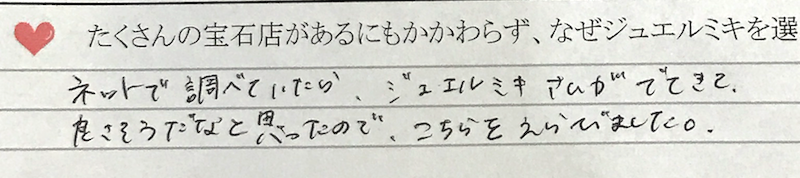 たくさんの宝石店があるにもかかわらず、なぜジュエルミキを選
ネットで調べていたら、ジュエルミキさんがでてきて、
良さそうだなと思ったので、こちらをえらびました。